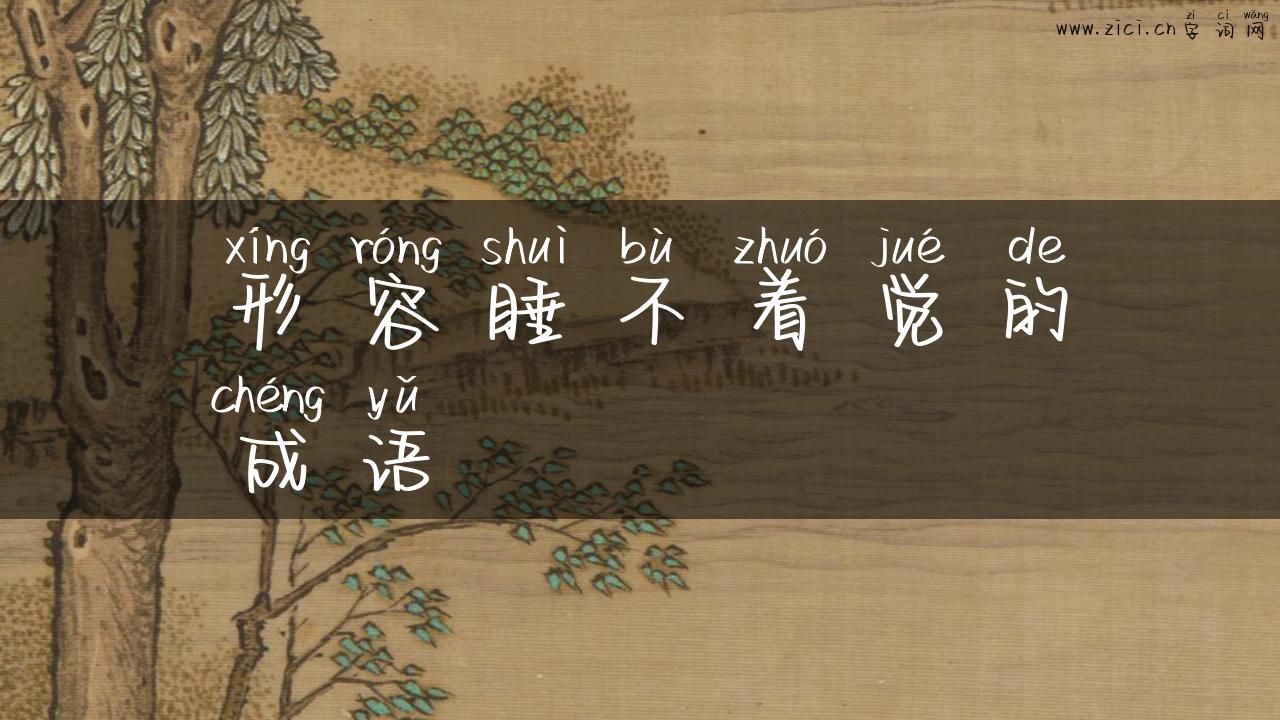 zì cí wǎng
www.zici.cn 字词网
xíng róng shuì bù zhuó jué de
形容睡不着觉的
chéng yǔ
成语